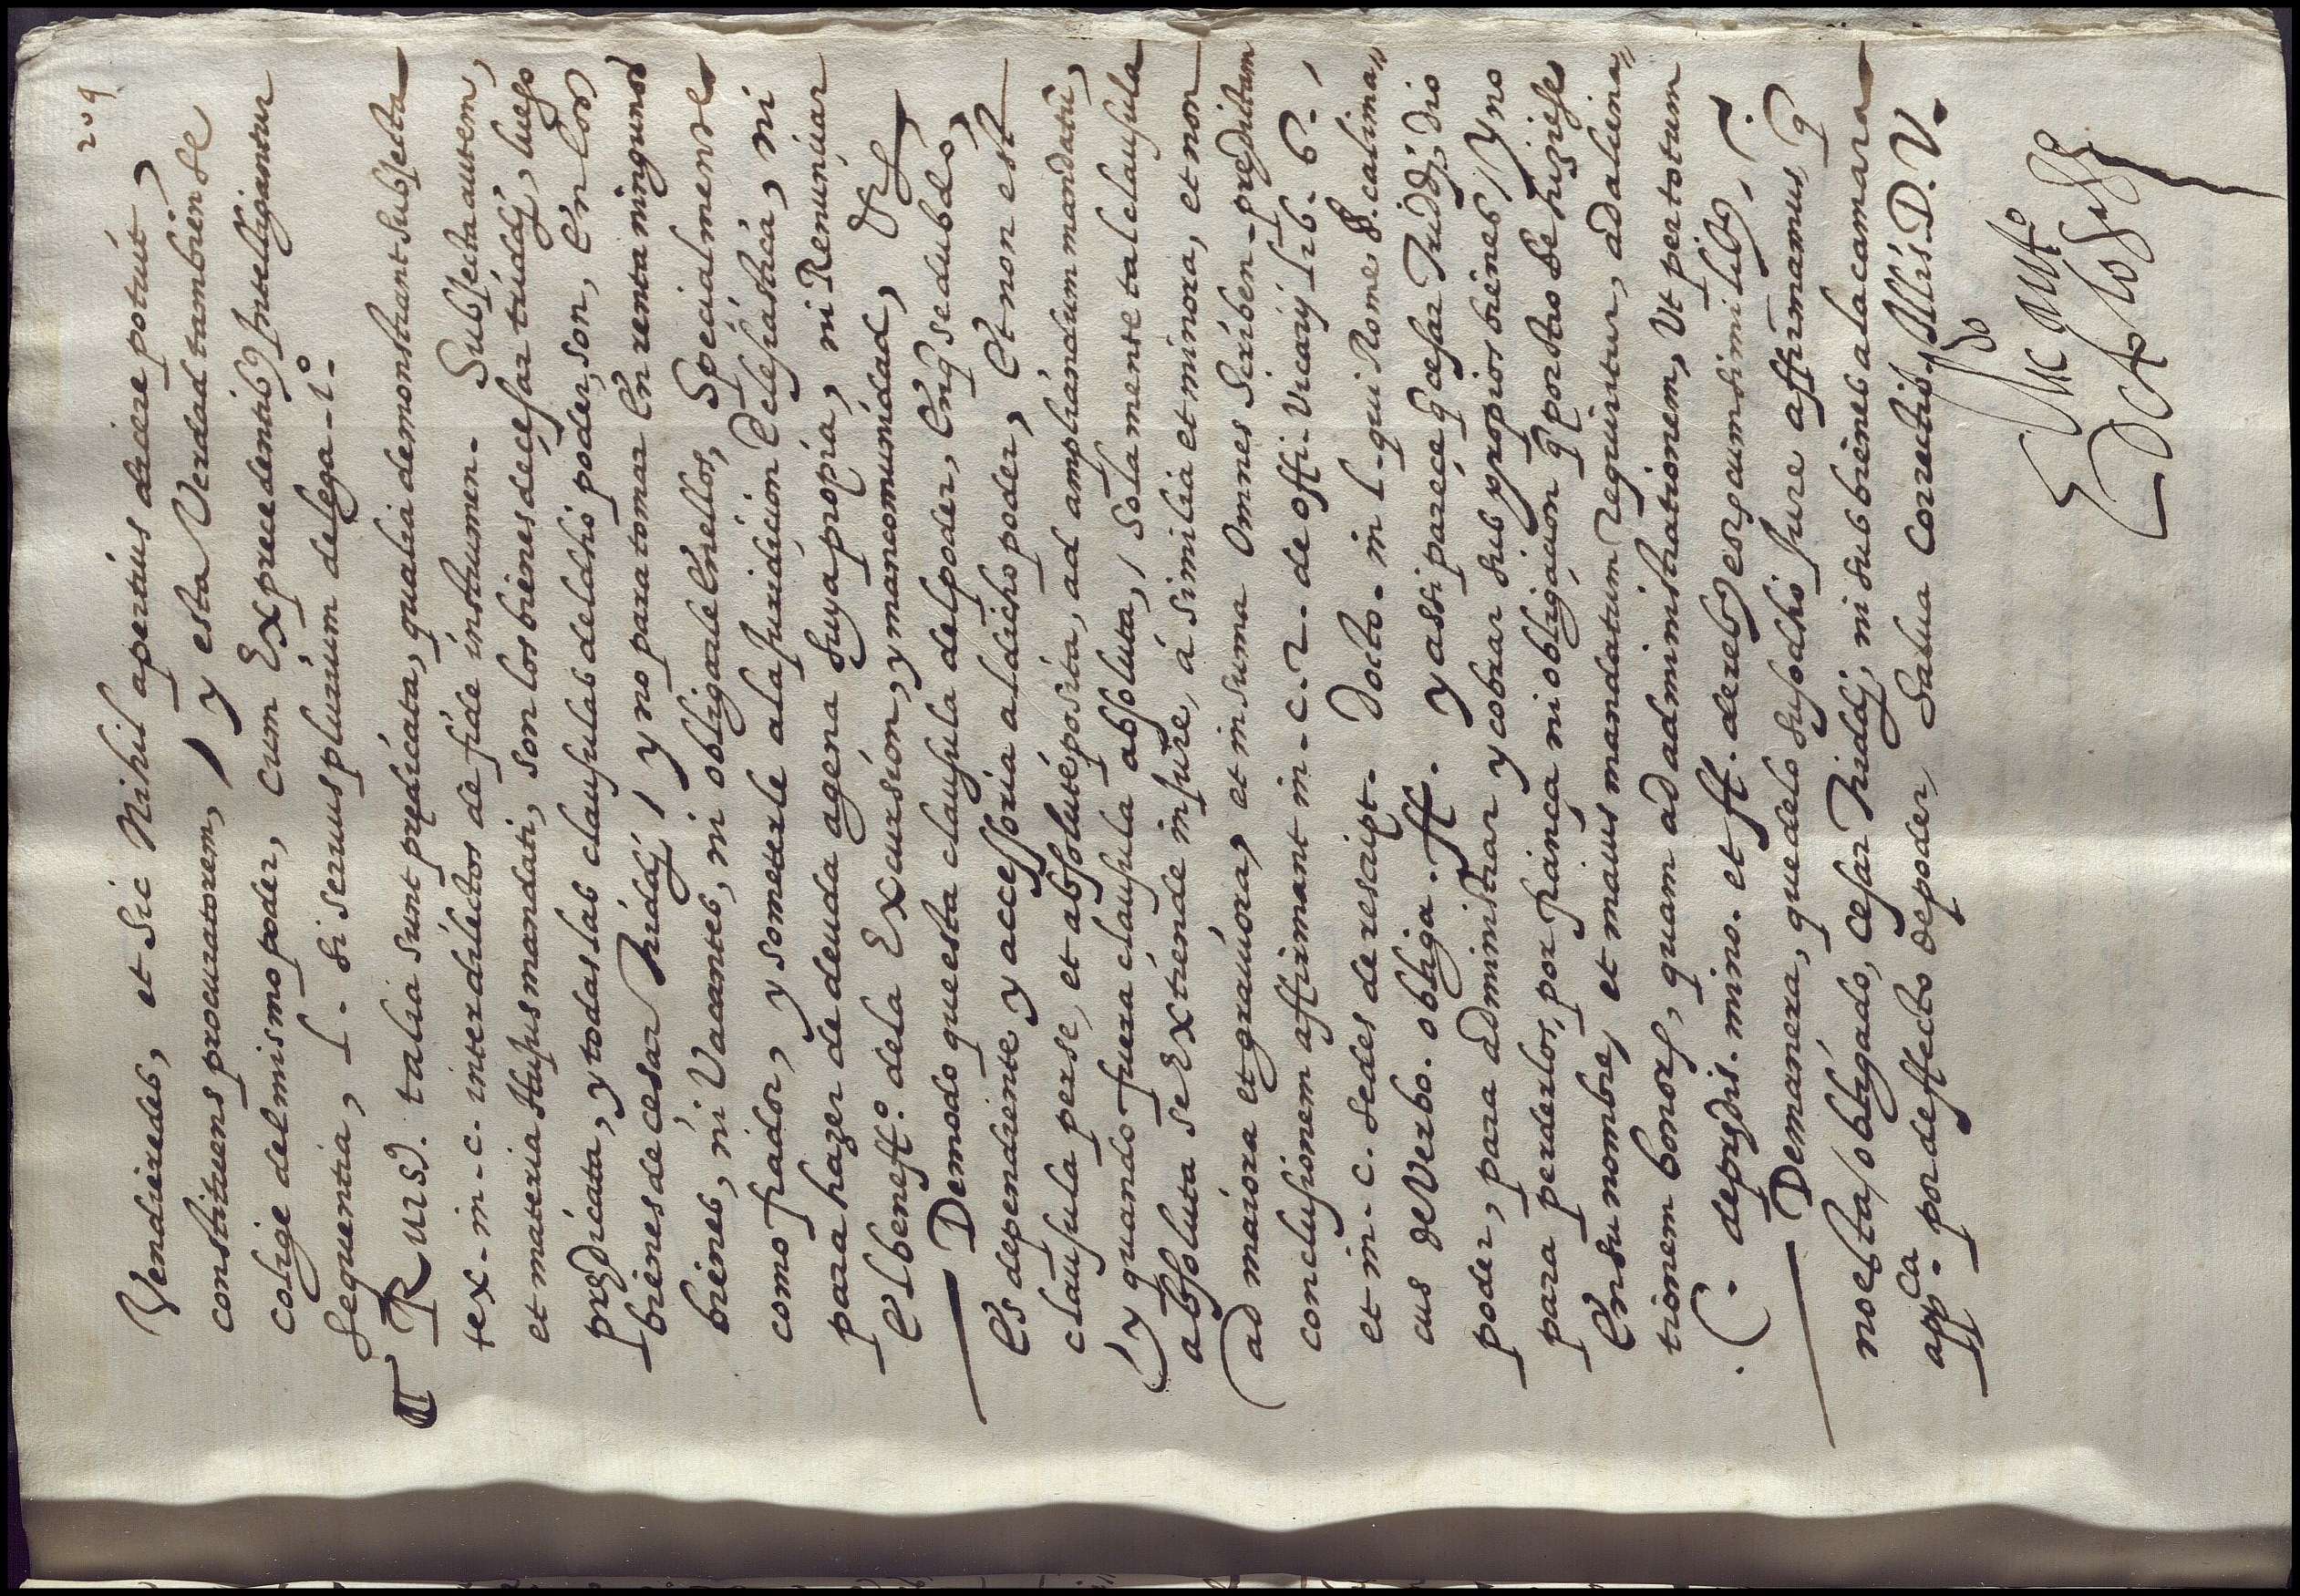 209
Vendieredes, et sic Nihil apertius dicere potuit,
constituens procuratorem, / y esta Verdad tambien se
colige del mismo poder, cum Ex precedentibq Inteligantur
sequentia, l. si servus plurium de lega. 1º.
Rursq. talia sunt predicata, qualia demonstrant subjecta
tex. in. c. inter dilectos de fide instrumen. Subjecta autem,
et materia Hujus mandati, son los bienes de cesar triddj, luego
prędicata, y todas las clausulas del dho poder, son, En los
bienes de cesar Triddj / y no para tomar En renta ningunos
bienes, ni Vacantes, ni obligarle En ellos, Specialmente
como fiador, y someterle a la Juridicion Eclesiastica, ni
para hazer de deuda agena suya propia, ni Renunciar
El beneffº. de la Excursion, y mancomunidad, &c,
De modo que esta clausula del poder, En q se dubdo,
Es dependiente y accessoria al dicho poder, Et non est
clausula per se, et absolute posita, ad ampliandum mandatū,
(y quando fuera clausula absoluta, / Sola mente tal clausula
absoluta se Extiende in jure, á similia et minora, et non
ad maiora et graviora, et in suma Omnes Scriben. predictam
conclusionem affirmant in. c. 2. de offi. Vicarij lib. 6. /
et in. c. sedes de rescript. Docto. in l. qui Rome §. calima„
cus de Verbo. obliga. ff. y assi parece q cesar Triddj, dio
poder, para administrar y cobrar sus propios bienes / y no
para perderlos, por fiança ni obligacion q por otro se hiziese
En su nombre, et maius mandatum requiritur, ad aliena„
tionem bonorȝ, quam ad administrationem, Vt per totum
.C. de prędis. mino. et ff. de rebq eorȝ cum similibq, /.
De manera, que de lo susodho Jure affirmamus, q
no esta / obligado, cesar Triddj, ni sus bienes a la camara
appca. por deffecto de poder, Salua Corretis. Illis. D. V.